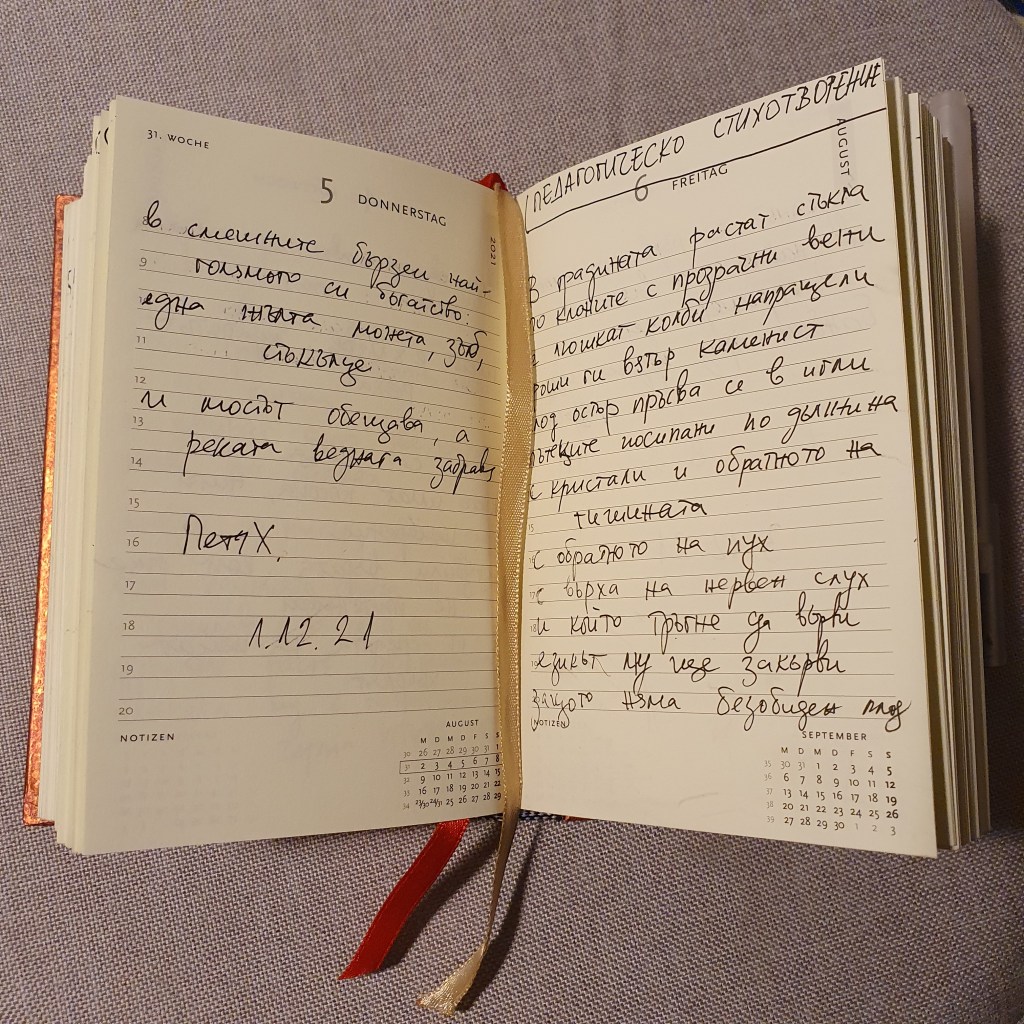 31. WOCHE
5 DONNERSTAG
2021
в смешните бързеи най-
голямото си богатство:
една жълта монета, зъб,
стъкълце
И мостът обещава, а
реката веднага забравя
Петя Х.
1.12.21
9
11
12
13
14
15
16
17
18
19
20
NOTIZEN
AUGUST
M D M D F S S
30 26 27 28 29 30 31 1
31 2 3 4 5 6 7 8
32 9 10 11 12 13 14 15
33 16 17 18 19 20 21 22
34 23/30 24/31 25 26 27 28 29
ПЕДАГОГИЧЕСКО СТИХОТВОРЕНИЕ
6 FREITAG
AUGUST
В градината растат стъкла
по клоните с прозрачни вени
се люшкат колби напращели
роши ги вятър каменист
плод остър пръсва се в игли
пътеките посипани по дължина
с кристали и обратното на
тишината
с обратното на пух
с върха на нервен слух
и който тръгне да върви
езикът му ще закърви
защото няма безобиден плод
NOTIZEN
SEPTEMBER
M D M D F S S
35 30 31 1 2 3 4 5
36 6 7 8 9 10 11 12
37 13 14 15 16 17 18 19
38 20 21 22 23 24 25 26
39 27 28 29 30 1 2 3